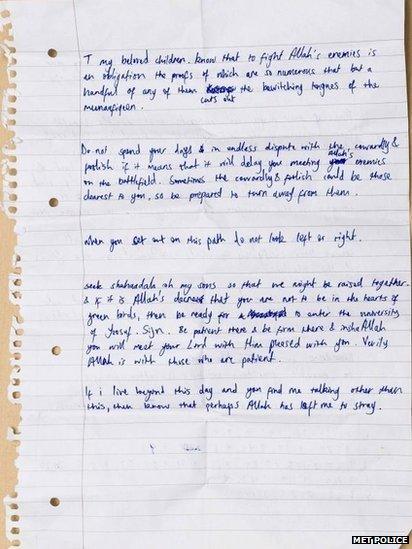 T my beloved children. Know that to fight Allah's enemies is
an obligation the proofs of which are so numerous that but a
handful of any of them cuts out the bewitching tongues of the
munafiqeen.
Do not spend your days in endless dispute with the cowardly &
foolish if it means that it will delay you meeting Allah's enemies
on the battlefield. Sometimes the cowardly & foolish could be those
dearest to you, so be prepared to turn away from them.
When you set out on this path do not look left or right.
Seek shahaadala oh my sons so that we might be raised together.
& if it is Allah's decree that you are not to be in the hearts of
green birds, then be ready for to enter the university
of Yoosuf. Sijn. Be patient there & be firm there & inshaAllah
you will meet your Lord with Him pleased with you. Verily
Allah is with those who are patient.
If i live beyond this day and you find me talking other than
this, then know that perhaps Allah has left me to stray.
MET POLICE